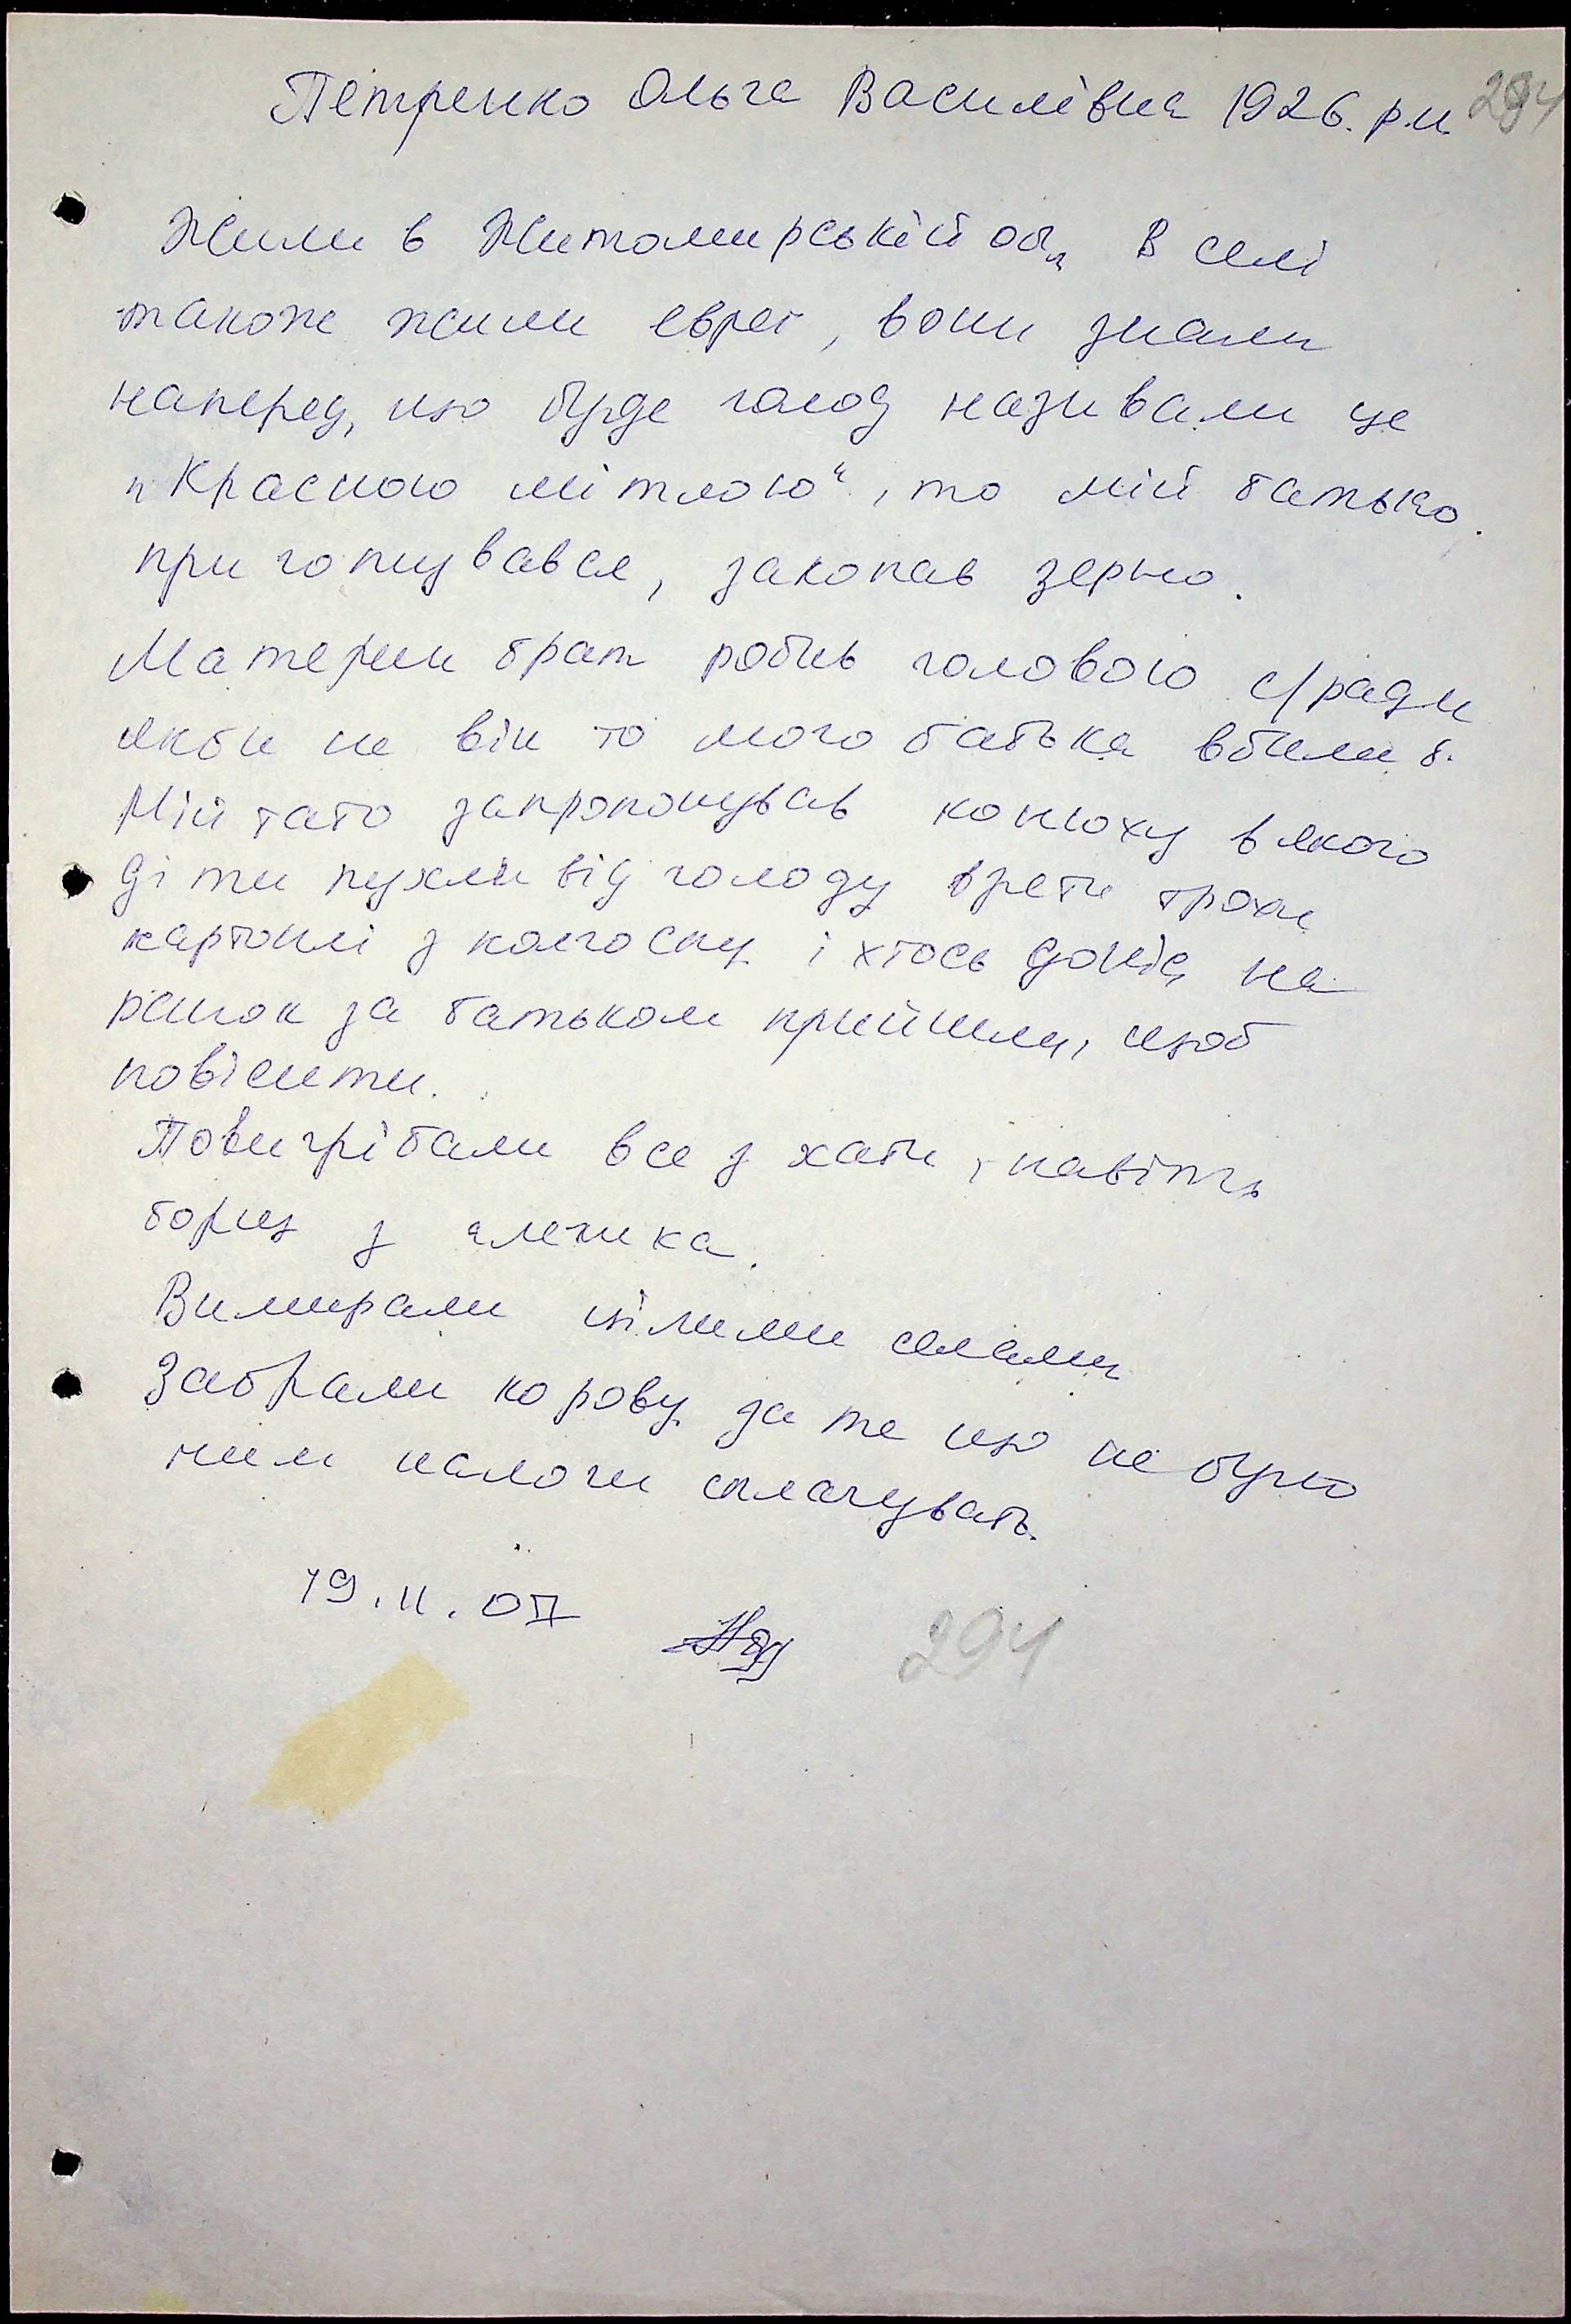 Петренко Ольга Василівна 1926. р.н 294
Жили в Житомирській обл В селі
також жили евреї, вони знали
наперед, що буде голод називали це
"Красною мітлою", то мій батько
приготувався, закопав зерно.
Материн брат робив головою с/ради
якби не він то мого батька вбили б.
Мій тато запропонував конюху в якого
діти пухли від голоду врети трохи
картоплі з колгоспу і хтось доніс, на
ранок за батьком прийшли, щоб
повісити.
Повигрібали все з хати, навіть
борщ з
Вимирали цілими селами
Забрали корову за те що не було
чим налоги сплачувать.
19.11.07
294